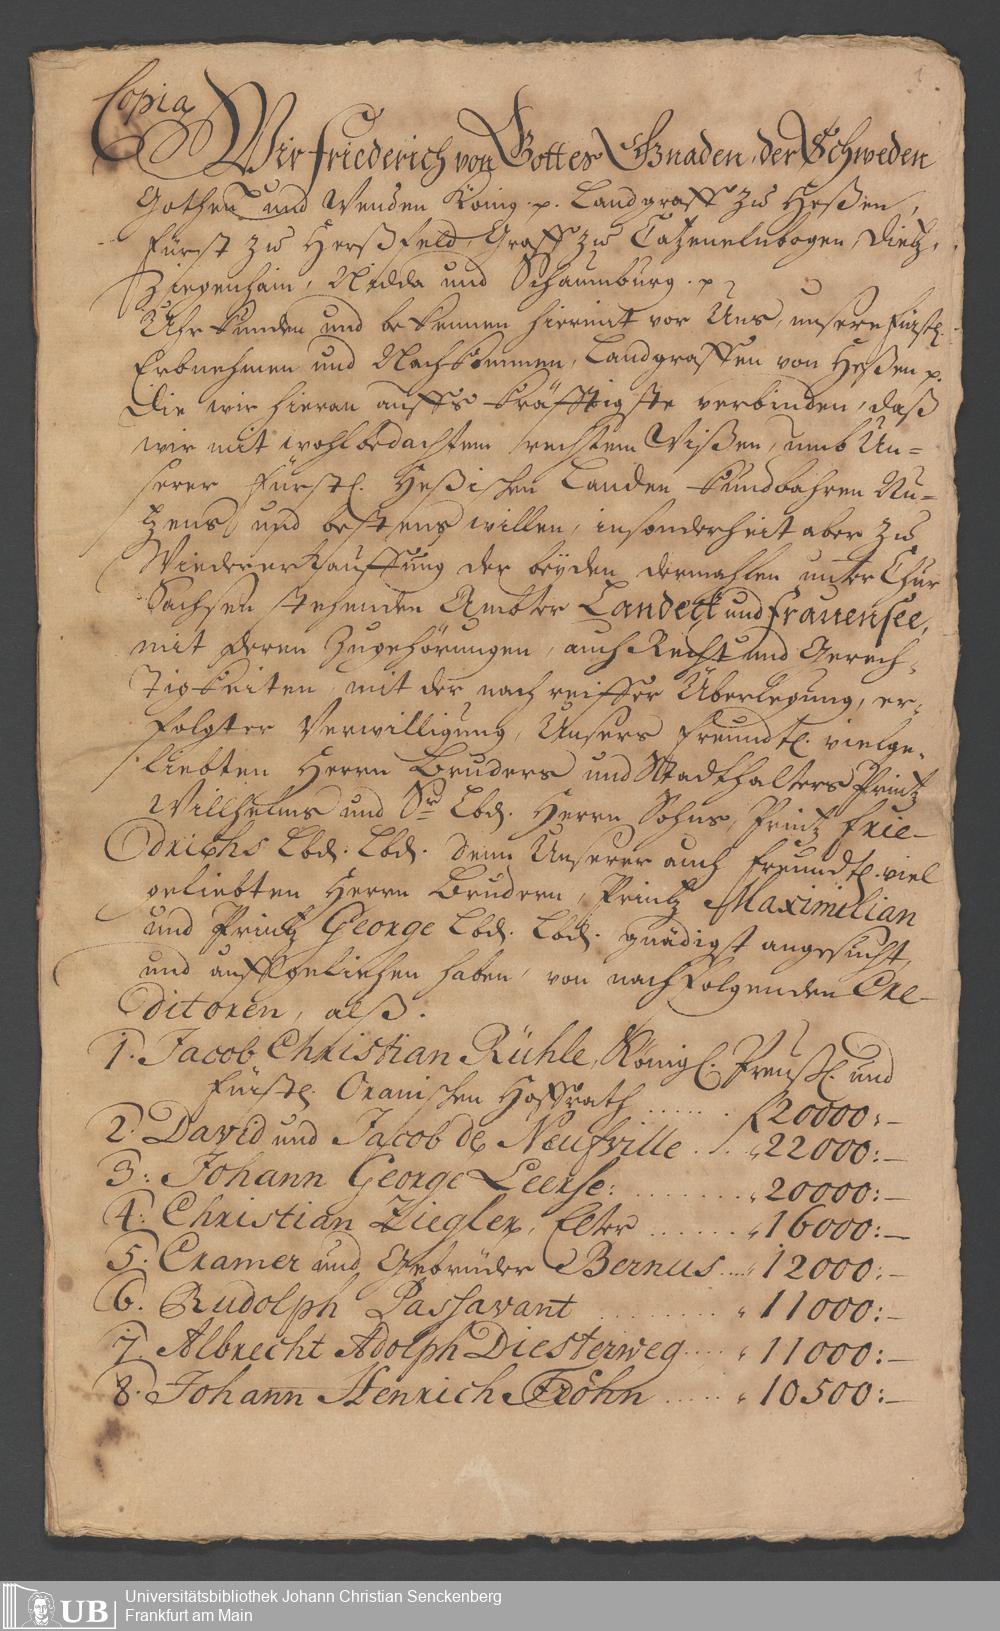 Copia
Wir Friederich von Gottes Gnaden, der Schweden
Gothen und Wenden König .p. Landgraff zu Heßen,
Fürst zu Herßfeld, Graff zu Catzenelnbogen, Dietz,
Ziegenhain, Nidda und Schaumburg .p
Uhrkunden und bekennen hiermit vor Uns, unsere Fürstl.
Erbnehmen und Nachkommen, Landgraffen von Heßen p.
Die wir hieran auffs kräfftigste verbinden, daß
wir mit wohlbedachtem rechtem Wißen, umb Un=
serer Fürstl. Heßischen Landen kundbahren Nu=
tzens und bestens willen, insonderheit aber zu
Wiedererkauffung der beyden dermahlen unter Chur
Sachsen stehenden Ämbter Landeck und Frauensee,
mit deren Zugehörungen, auch Recht und Gerech=
tigkeiten, mit der, nach reiffer Überlegung, er=
folgter Verwilligung, Unsers freundtl. vielge=
liebten Herrn Bruders und Stadthalters Printz
Willhelms und Sr. Lbd. Herrn Sohns, Printz Frie=
drichs Lbd. Lbd. denn Unserer auch freundtl. viel
geliebten Herrn Brudern, Printz Maximilian
und Printz George Lbd. Lbd. gnädigst angesucht,
und auffgeliehen haben, von nachfolgenden Cre=
ditoren, alß.
1. Jacob Christian Rühle, Königl. Preußl. und
Fürstl. Oranischen Hoffrath ...... f 20000:—
2. David und Jacob de Neufville . . . " 22000:—
3. Johann George Leerse: ....... " 20000:—
4. Christian Ziegler, Elter ...... " 16000:—
5. Cramer und Gebrüder Bernus .... " 12000:—
6. Rudolph Passavant ....... " 11000:—
7. Albrecht Adolph Diesterweg .... " 11000:—
8. Johann Henrich Fröhn ..... " 10500:—
UB
Universitätsbibliothek Johann Christian Senckenberg
Frankfurt am Main